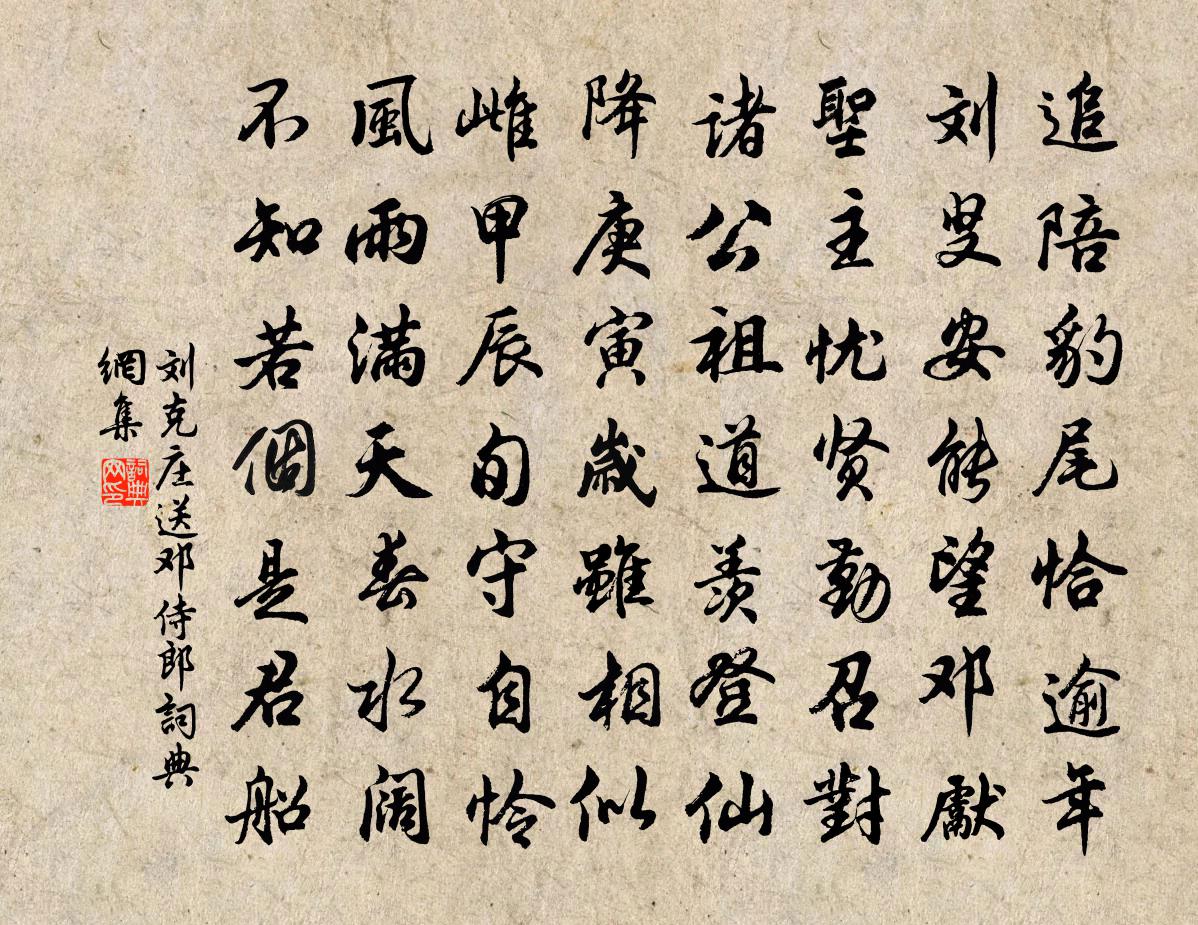 追陪豹尾恰逾年
刘叟安能望邓獻
聖主忧贤勤召對
诸公祖道羡登仙
降庚寅歲雖相似
雌甲辰旬守自怜
風雨满天春水阔
不知若個是君船
刘克庄送邓侍郎詞典
網集
詞典
网印